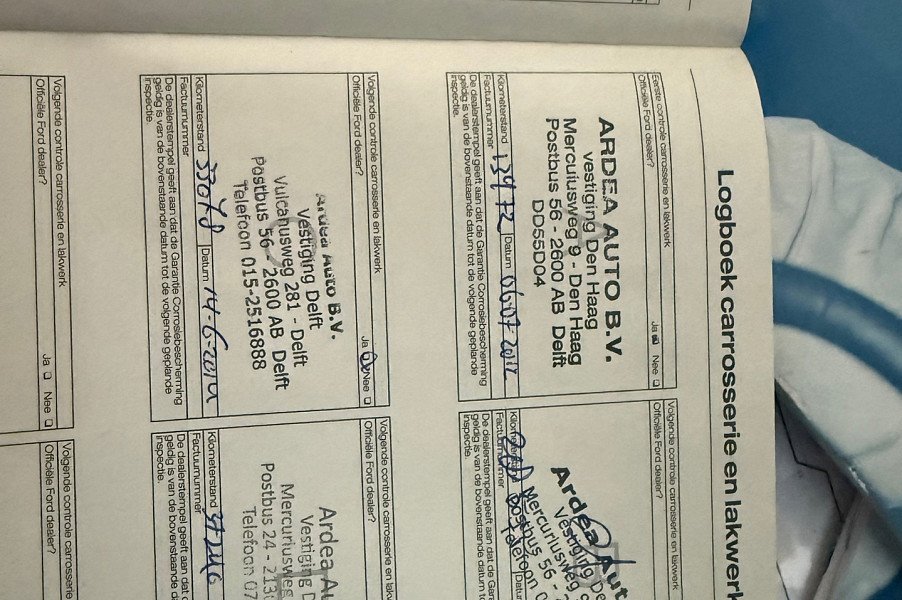 Logboek carrosserie en lakwerk
Eerste controle carrosserie en lakwerk
Officiële Ford dealer? Ja Nee
ARDEA AUTO B.V.
vestiging Den Haag
Mercuriusweg 9 - Den Haag
Postbus 56 - 2600 AB Delft
DD55D04
Kilometerstand 13972 Datum 06-07-2012
Factuurnummer
De dealerstempel geeft aan dat de Garantie Corrosiebescherming
geldig is van de bovenstaande datum tot de volgende geplande
inspectie.
Volgende controle carrosserie en lakwerk
Officiële Ford dealer?
Ardea Aut
Vestiging De
Mercuriusweg
Postbus 56 -
Telefoon 0
Factuurnummer
De dealerstempel geeft aan dat de Gara
geldig is van de bovenstaande datum to
inspectie.
Volgende controle carrosserie en lakwerk
Officiële Ford dealer? Ja Nee
Ardea Auto B.V.
Vestiging Delft
Vulcanusweg 281 - Delft
Postbus 56 - 2600 AB Delft
Telefoon 015-2516888
Kilometerstand 33078 Datum 14-6-2014
Factuurnummer
De dealerstempel geeft aan dat de Garantie Corrosiebescherming
geldig is van de bovenstaande datum tot de volgende geplande
inspectie.
Volgende controle carrosserie en lakw
Officiële Ford dealer?
Ardea Au
Vestiging D
Mercuriusweg
Postbus 24 - 213
Telefoon 07
Kilometerstand
Factuurnummer
De dealerstempel geeft aan dat d
geldig is van de bovenstaande d
inspectie.
Volgende controle carrosserie en lakwerk
Officiële Ford dealer? Ja Nee
Volgende controle carrosserie
Officiële Ford dealer?